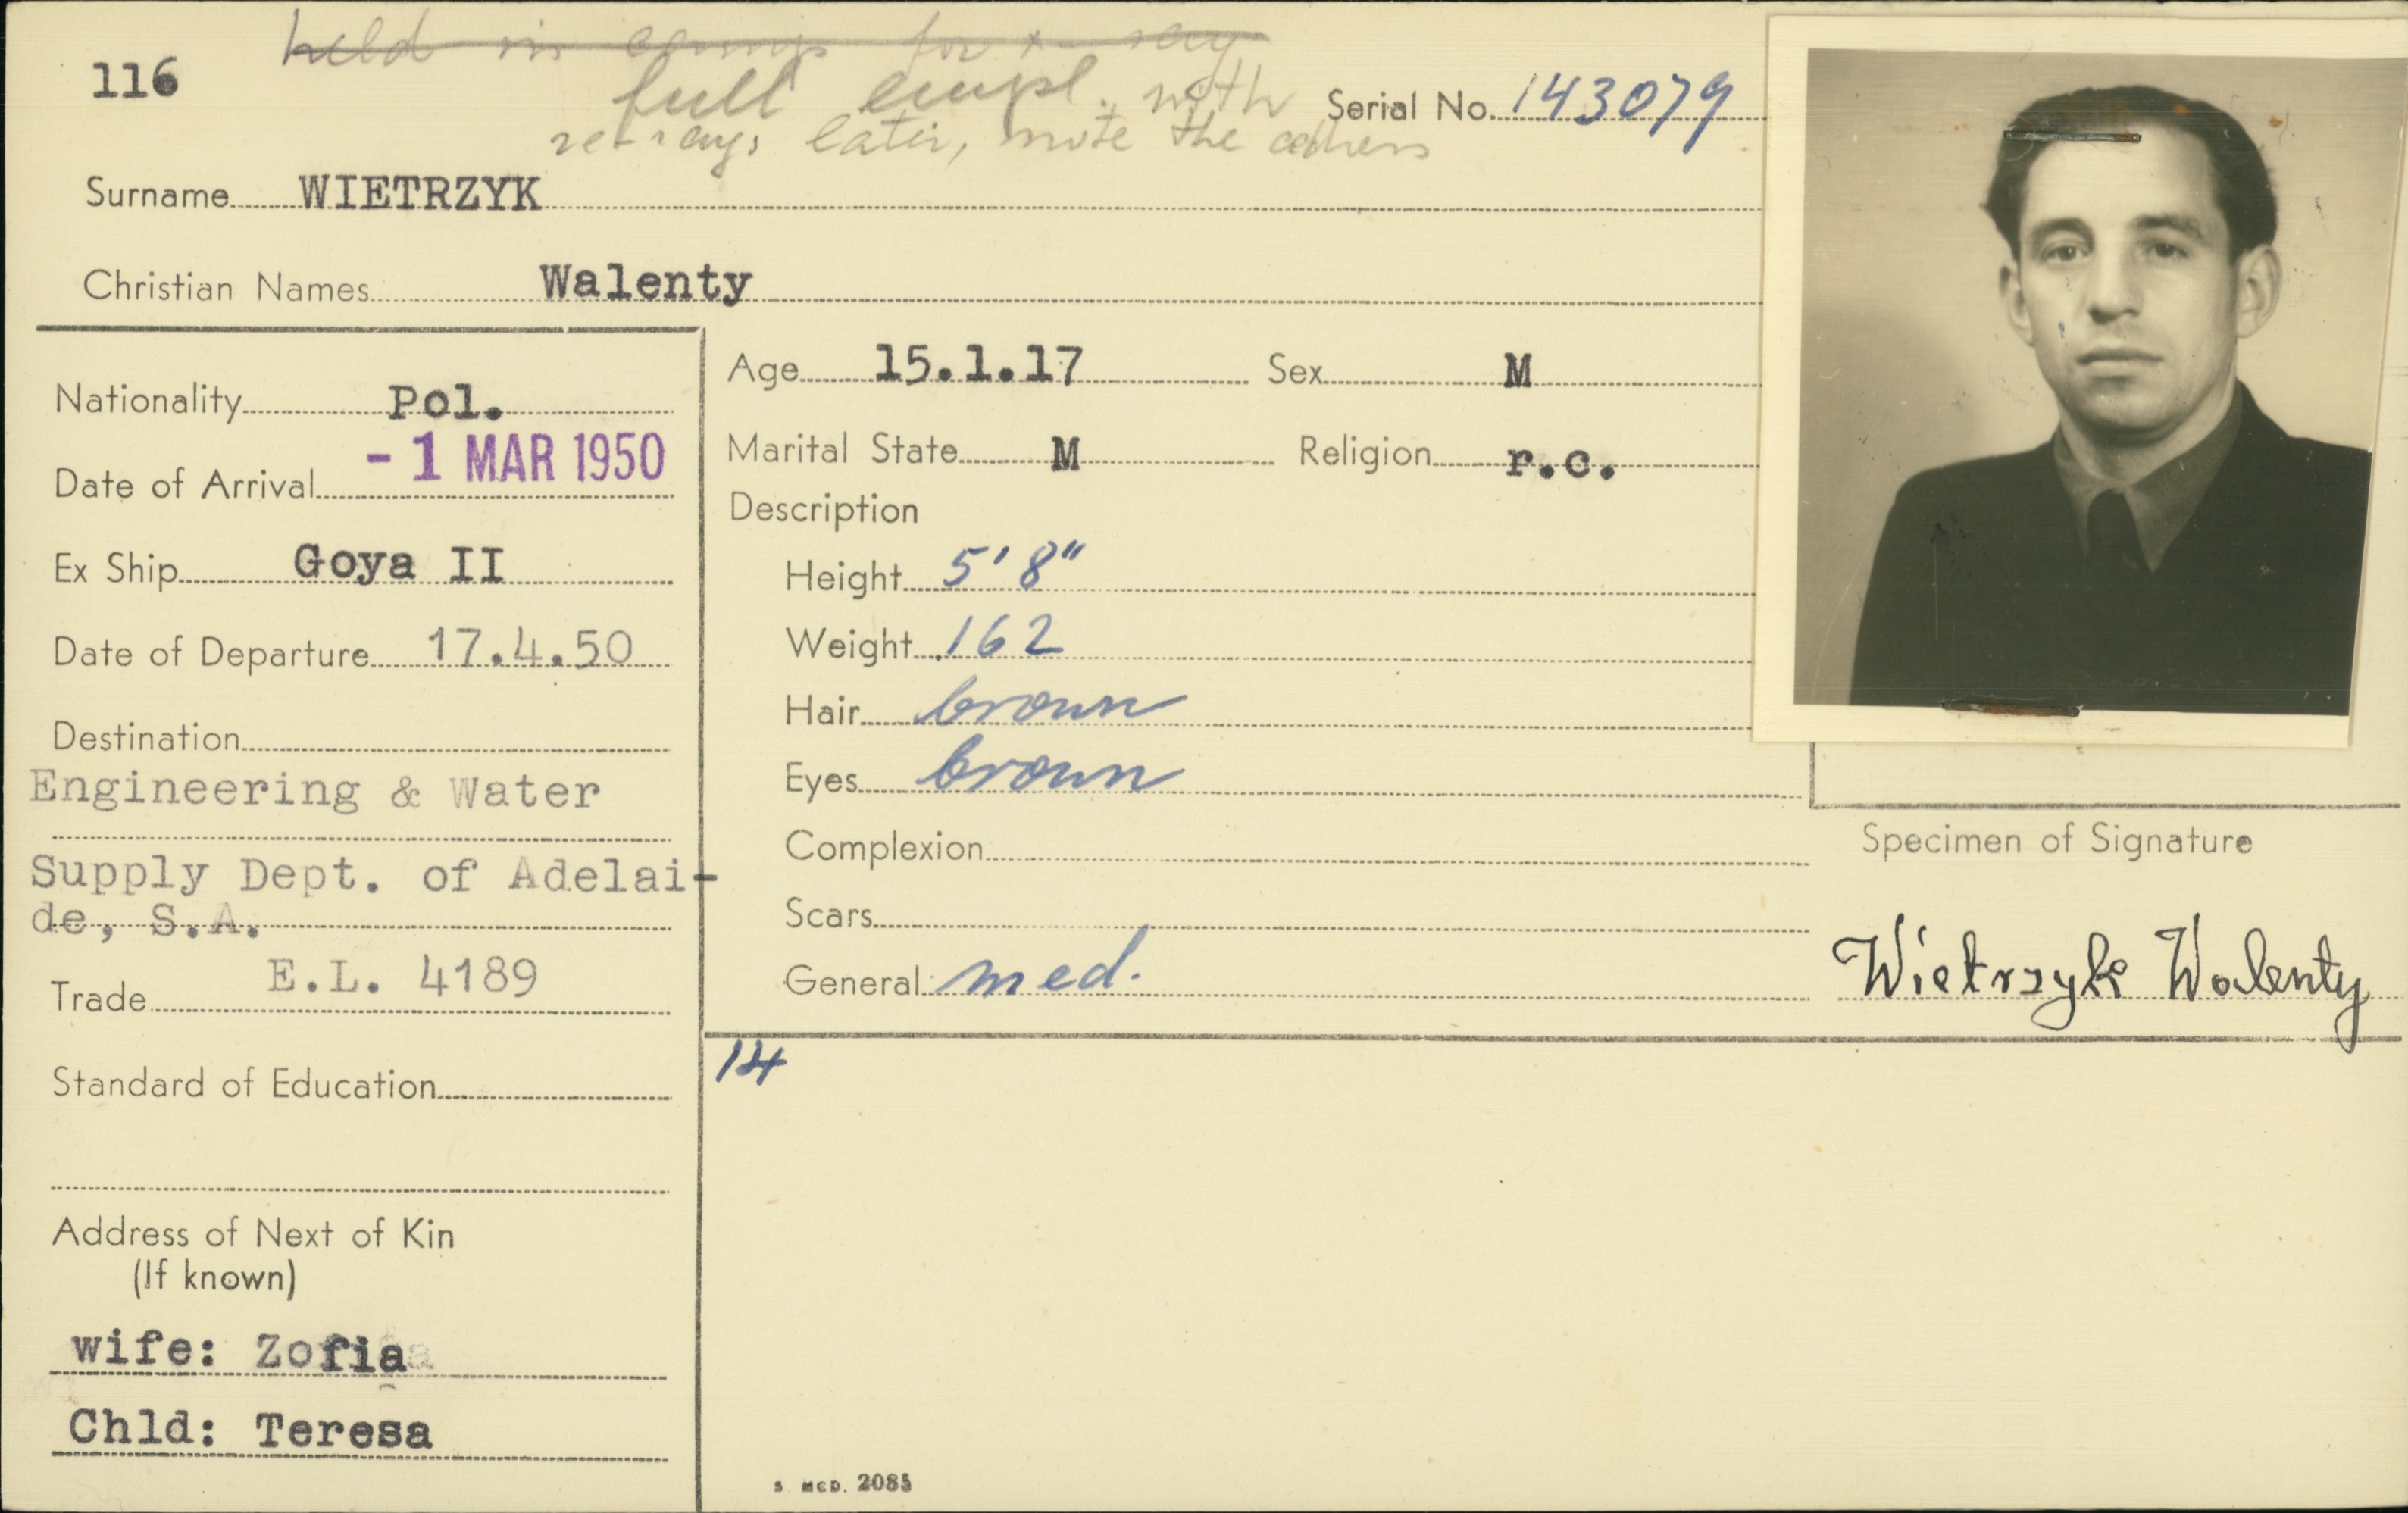 held in camp for x-ray
116
full empl. with
Serial No. 143079
re x-rays later, note the
Surname WIETRZYK
Christian Names Walenty
Nationality Pol.
Date of Arrival - 1 MAR 1950
Ex Ship Goya II
Date of Departure 17.4.50
Destination
Engineering & Water
Supply Dept. of Adelai-
de, S.A.
Trade E.L. 4189
Standard of Education
Address of Next of Kin
(If known)
wife: Zofia
Chld: Teresa
Age 15.1.17 Sex M
Marital State M Religion r.c.
Description
Height 5' 8"
Weight 162
Hair brown
Eyes brown
Complexion
Scars
General med.
Specimen of Signature
Wietrzyk Walenty
14
S. MCD. 2085